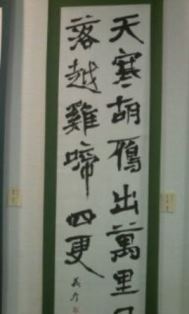 天寒胡雁出萬里月
落越雞啼四更